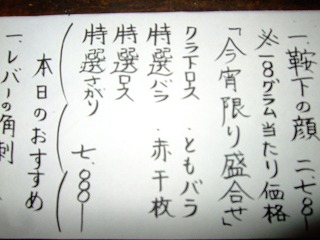 一、鞍下の顔 二、七八〇
※一〇〇グラム当たり価格
「今宵限り盛合せ」
クラ下ロス ・ともバラ
特選バラ ・赤千枚
特選ロス
特選さがり 七、八〇〇
本日のおすすめ
一、レバーの角刺